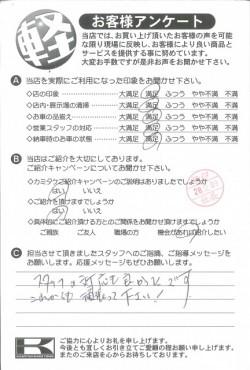 軽
お客様アンケート
当店では、お買い上げ頂いたお客様の声を可能
な限り現場に反映し、お客様により良い商品と
サービスを提供する事に努めています。
大変お手数ですが是非お声をお聞かせ下さい。
A 当店を実際にご利用になった印象をお聞かせ下さい。
◇店の印象 大満足 満足 ふつう やや不満 不満
◇店内・展示場の清掃 大満足 満足 ふつう やや不満 不満
◇お車の品揃え 大満足 満足 ふつう やや不満 不満
◇営業スタッフの対応 大満足 満足 ふつう やや不満 不満
◇納車時のお車の状態 大満足 満足 ふつう やや不満 不満
B 当店ではご紹介を大切にしてあります。
ご紹介キャンペーンについてお聞かせ下さい。
◇カミタケご紹介キャンペーンのご説明はありましたでしょうか
はい いいえ
◇ご紹介を頂けますでしょうか
はい いいえ
◇具体的にご紹介頂ける方とのご関係をお聞かせ頂けますでしょうか
ご親族 ご友人 職場の方 機会があれば紹介したい
C 担当させて頂きましたスタッフへのご指摘、ご指導メッセージを
お願いします。応援メッセージもぜひお願いします。
スタッフの対応も良かったです
これからも頑張って下さい!
K
ご協力に心よりお礼を申し上げます。
今後とも宜しくお引き立てご愛顧の程お願い申し上げます。
またのご来店を心からお待ちしております。